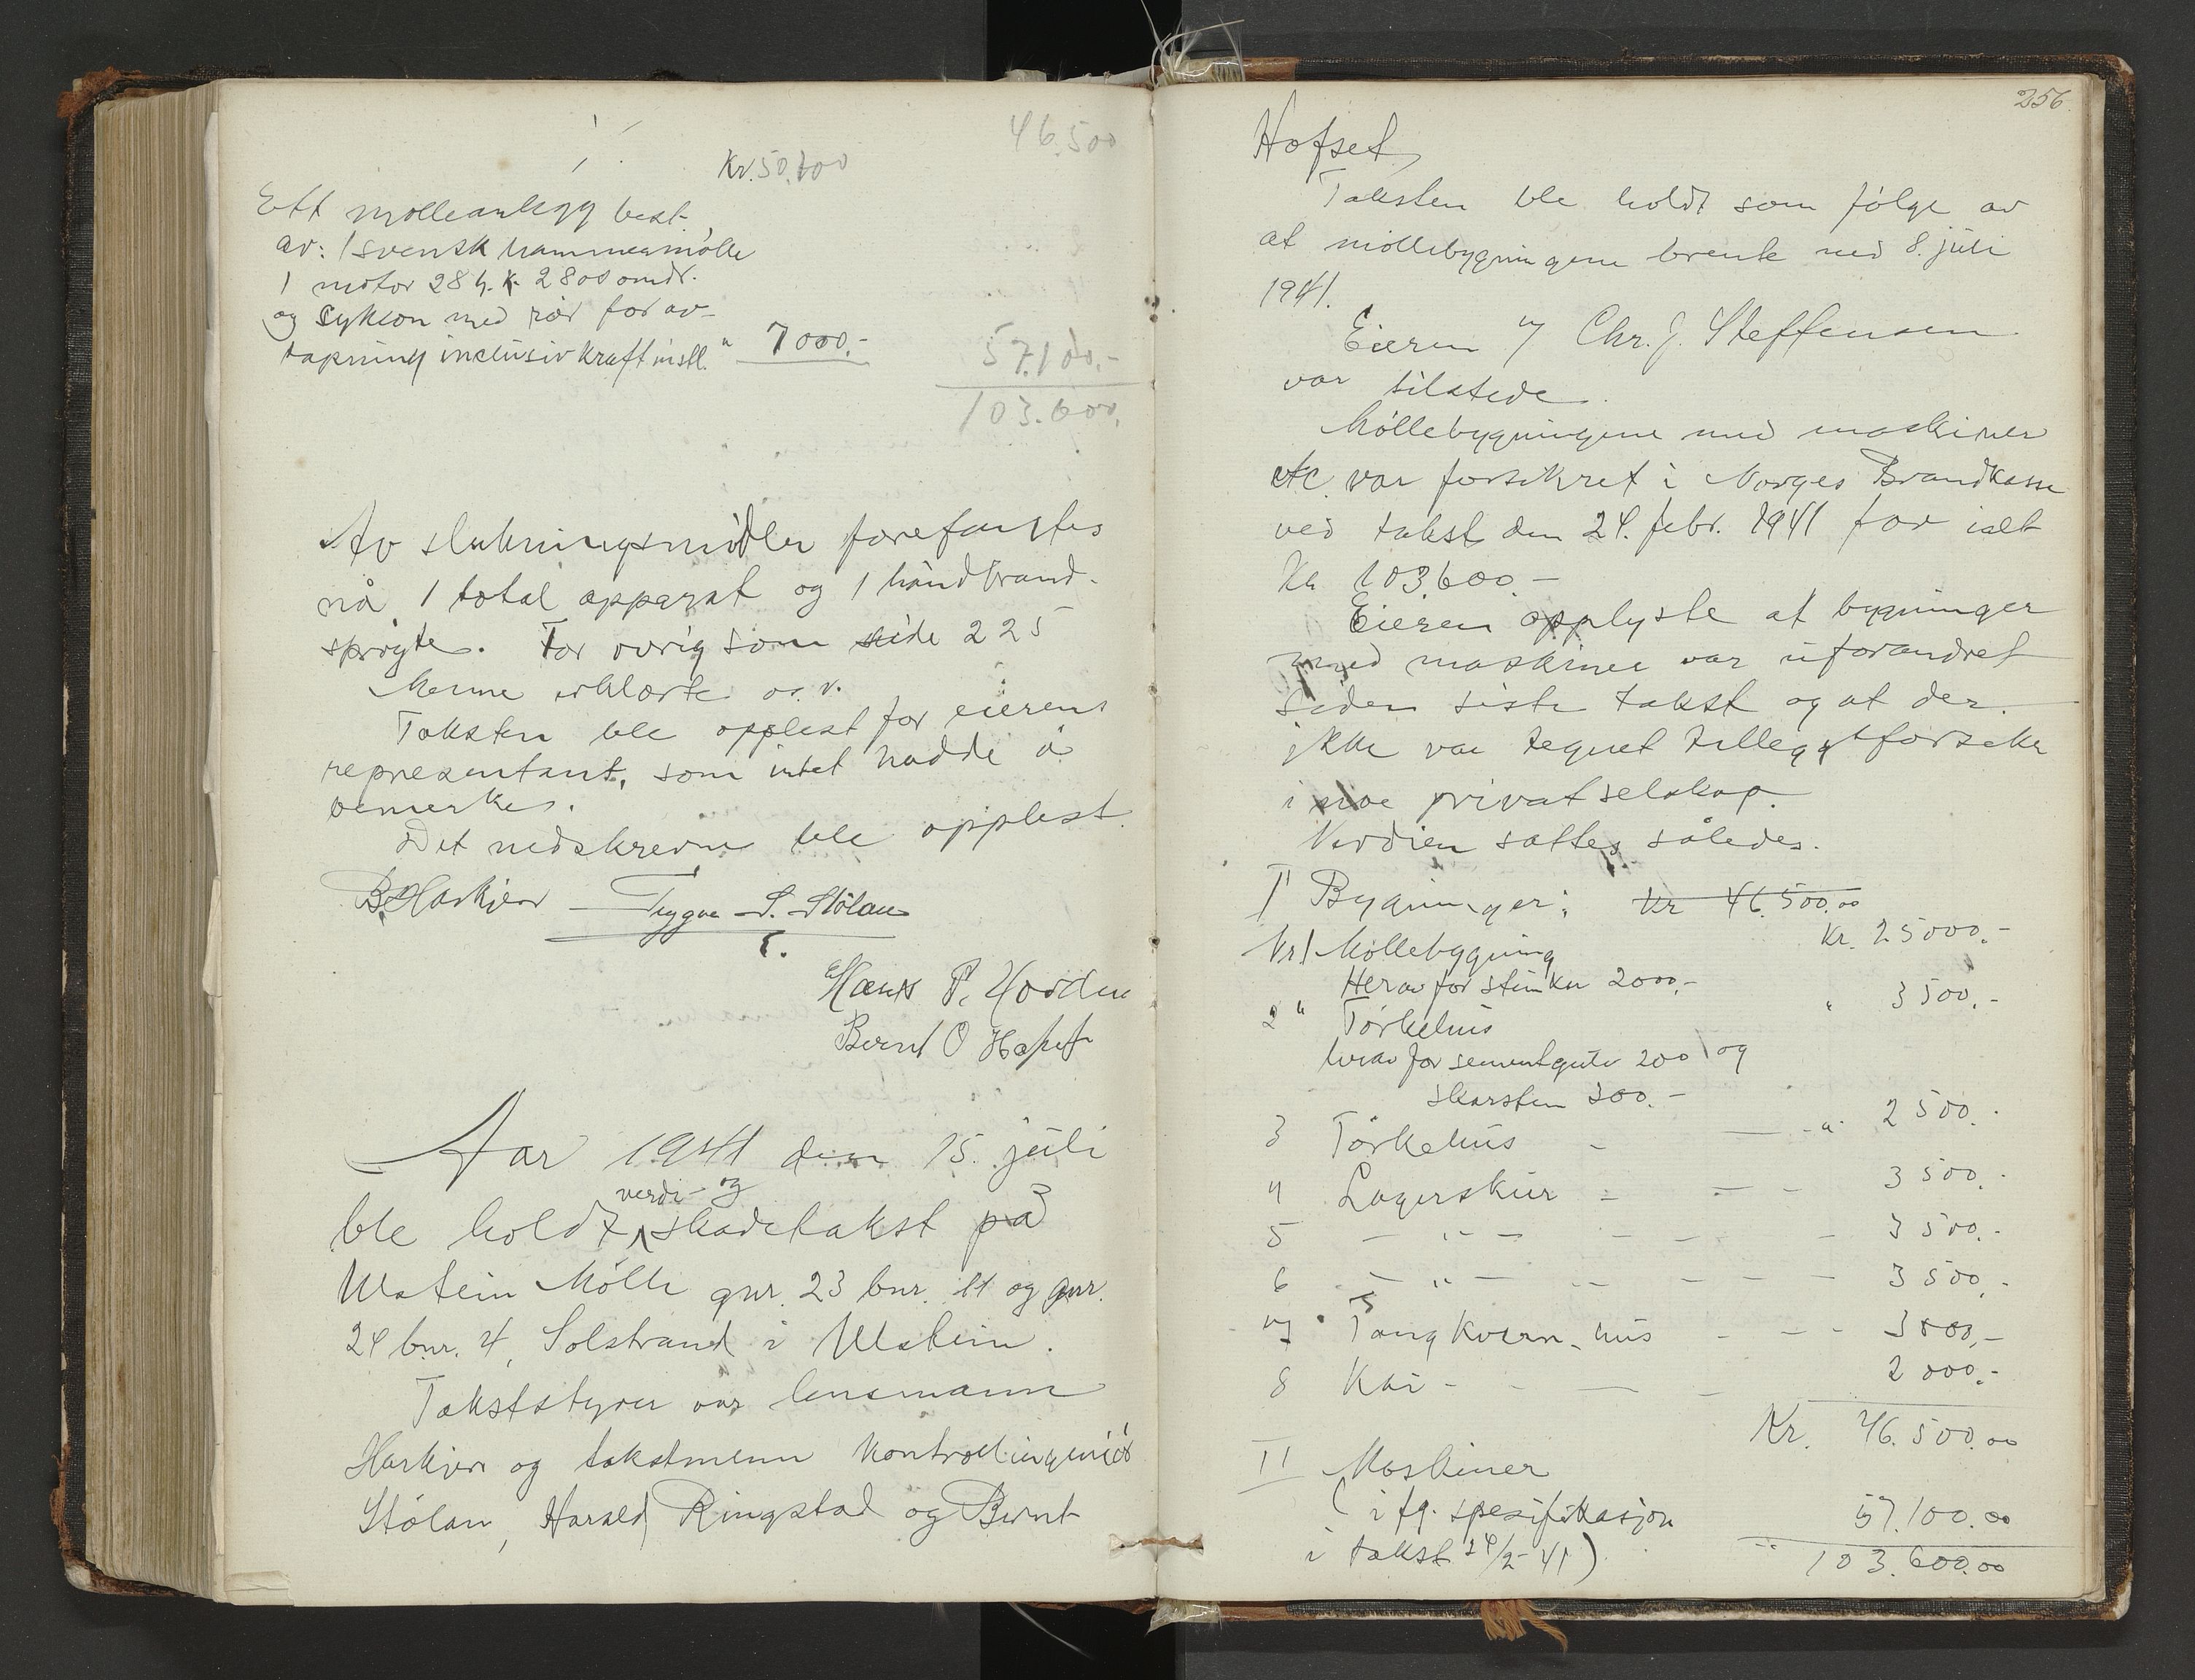 46.500
Kr. 50.100
Ett mølleanlegg best.
av: 1 svensk hammermølle
1 motor 28 h.k. 2800 omdr.
og syklon med rør for av-
tapning inclusiv kraftinstl. " 7000.-
57.100.-
103.600.
Av slukningsmidler forefantes
nå 1 total apparat og 1 håndbrand-
sprøyte. For øvrig som side 225
Menne erklærte o.s.v.
Taksten ble opplest for eierens
representant, som intet hadde å
bemerke.
Det nedskrevne ble opplest.
B. Harkjer Trygve S. Stölan
Hans P. Hovden
Bernt O Hofset
Aar 1941 den 15. juli
ble holdt verdi- og skadetakst på
Ulstein Mølle gnr. 23 bnr. 11 og gnr.
24 bnr. 4, Solstrand i Ulstein.
Takststyrer var lensmann
Harkjer og takstmenn kontrollingeniør
Stølan, Harald Ringstad og Bernt
256.
Hofset
Taksten ble holdt som følge av
at møllebygningene brente ned 8. juli
1941.
Eieren Chr. J. Steffensen
var tilstede.
Møllebygningene med maskiner
etc. var forsikret i Norges Brandkasse
ved takst den 24. febr. 1941 for ialt
Kr 103.600.-
Eieren opplyste at bygninger
med maskiner var uforandret
siden siste takst og at der
ikke var tegnet tilleggsforsikr
i noe privat selskap.
Verdien sattes således.
I Bygninger: Kr 46.500.00
Nr 1 Møllebygning Kr. 25000.-
Herav for stenku 2000.-
2 " Tørkehus " 3500.-
herav for sementgulv 200 og
skorsten 300.-
3 Tørkehus - — -"- 2500.-
4 Lagerskur - — - 3500.-
5 — " — - - - 3500.-
6 — " — - - - - 3500.-
7 Tangkvern-hus - - - 3000.-
8 Kai - - — - 2000.-
Kr. 46.500.00
II Maskiner
(ifg. spesifikasjon 57.100.00
i takst 24/2-41)
" 103.600.00